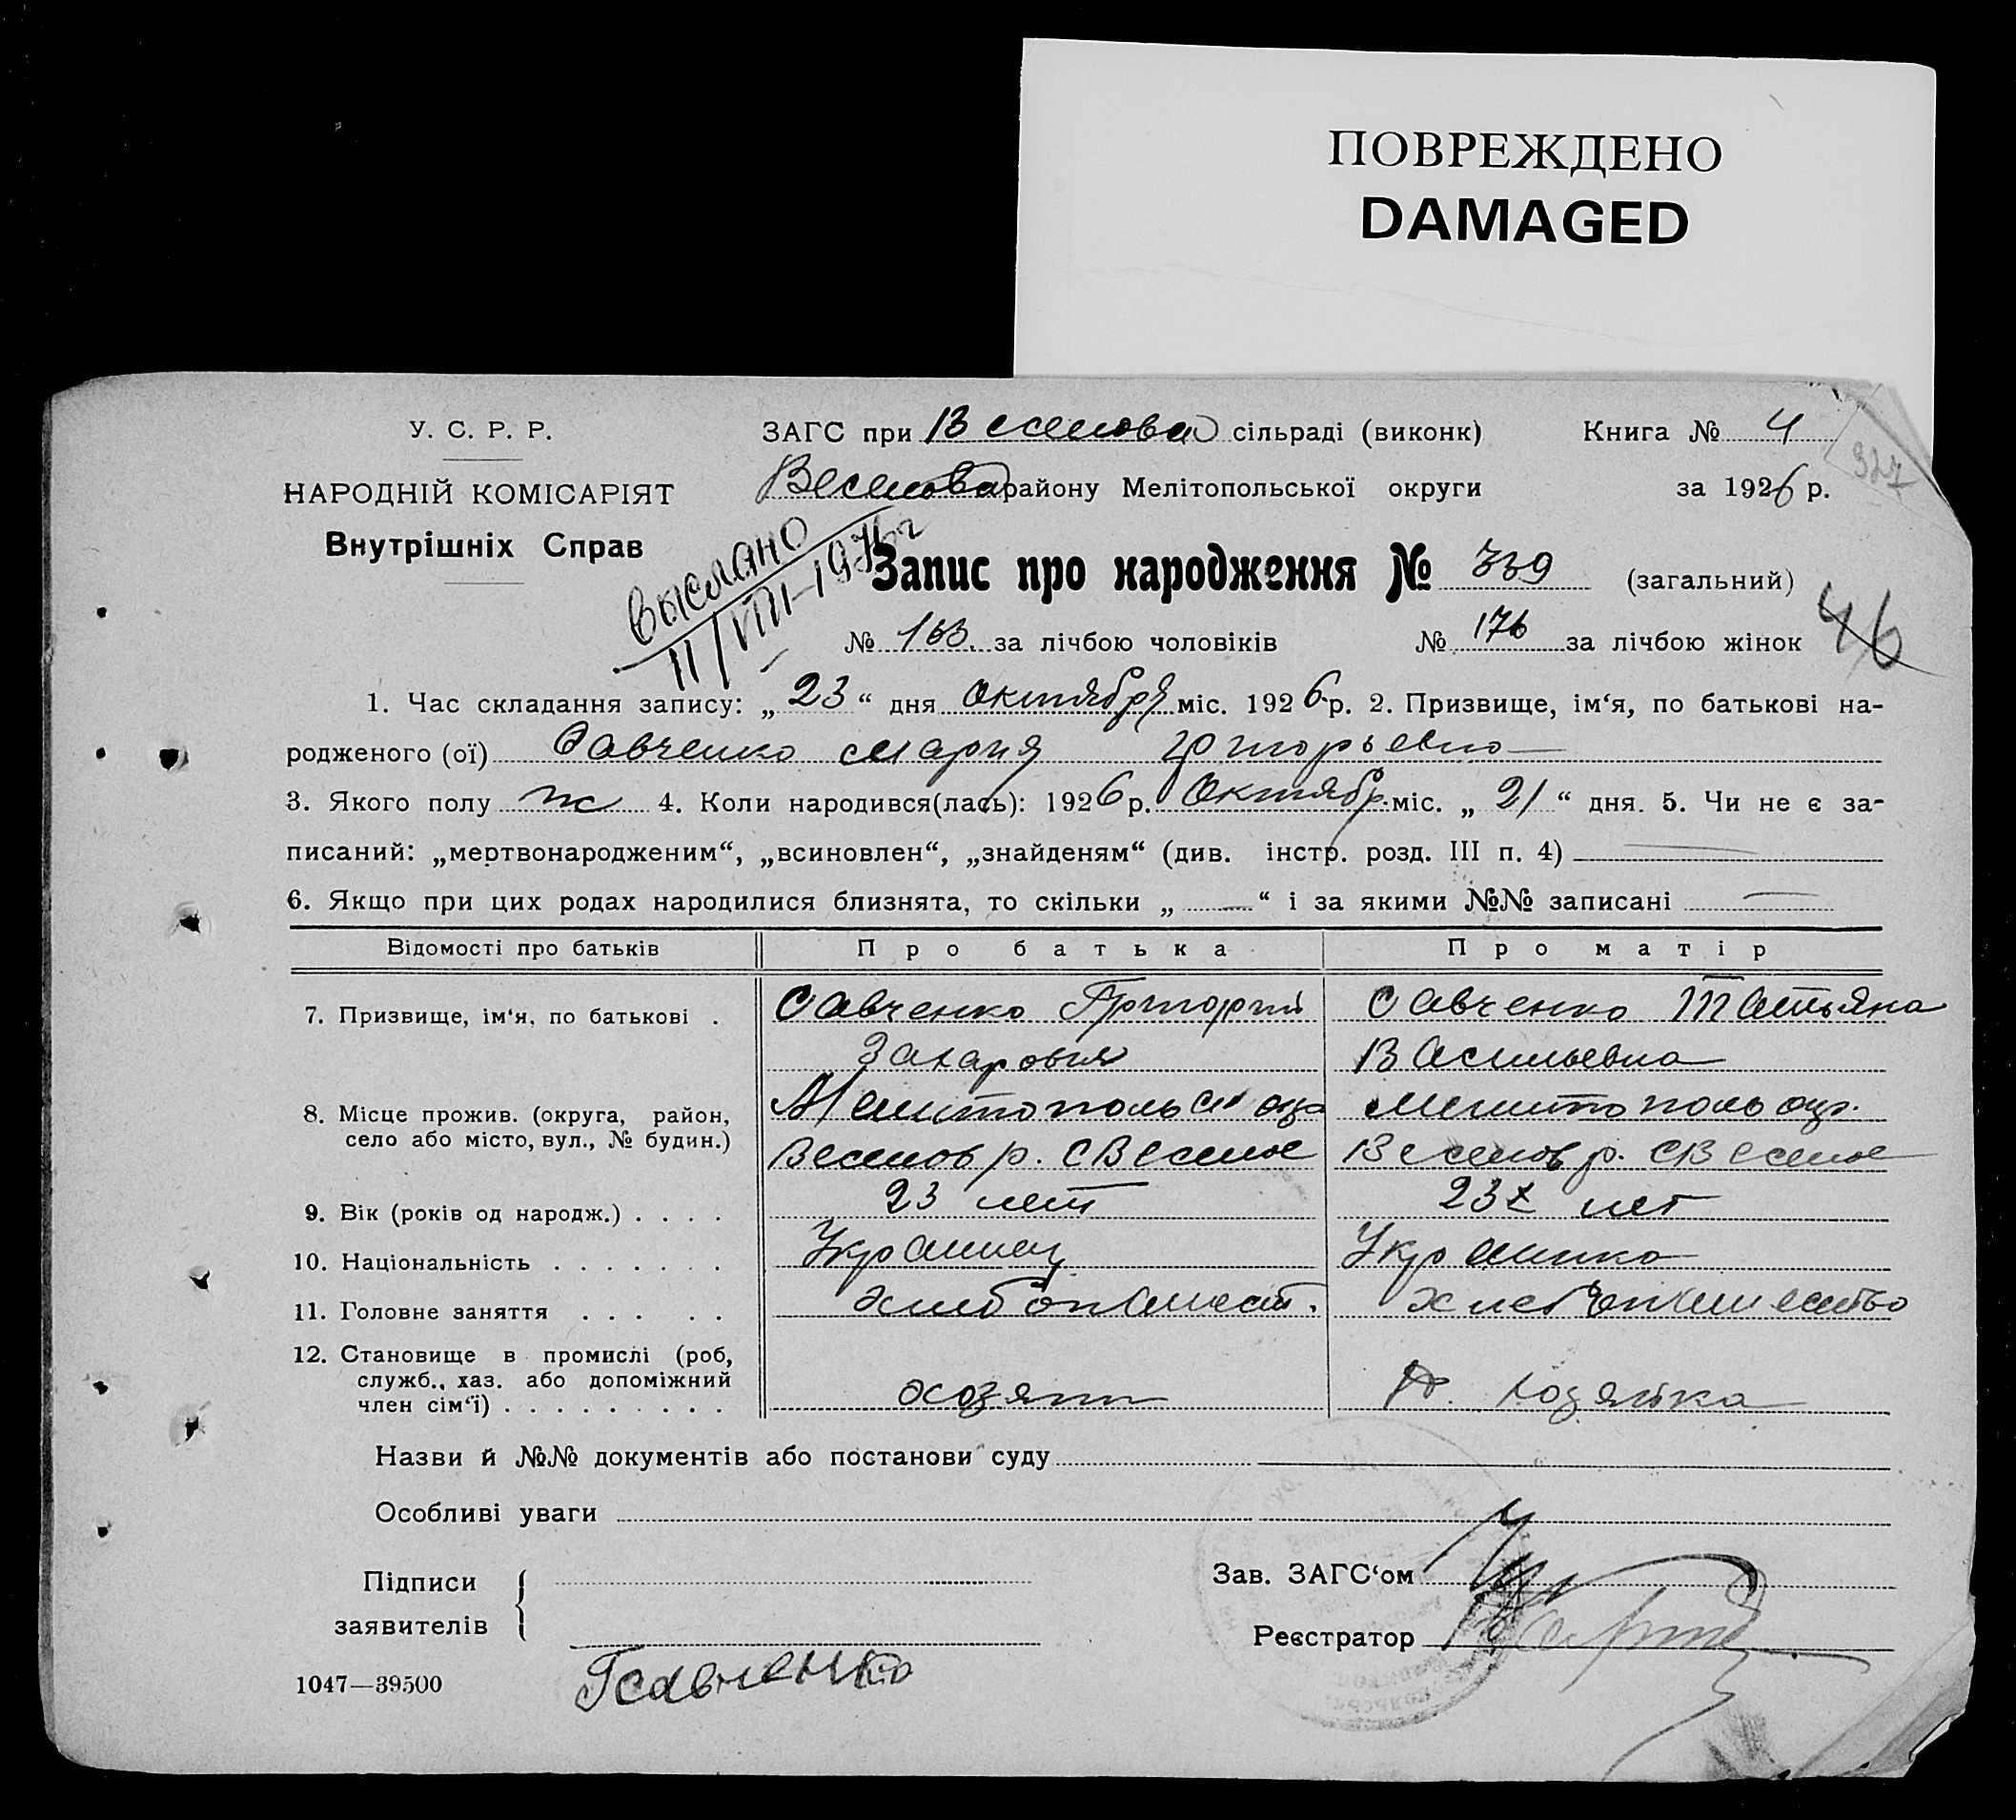 ПОВРЕЖДЕНО
DAMAGED
У. С. Р. Р.
НАРОДНІЙ КОМІСАРІЯТ
Внутрішніх Справ
ЗАГС при Веселовс сільраді (виконк)
Книга № 4
Веселовс району Мелітопольської округи
за 1926 р.
327
выслано
11/VIII-1976г
Запис про народження № 339 (загальний)
№ 163. за лічбою чоловіків № 176 за лічбою жінок
46
1. Час складання запису: „ 23 “ дня октября міс. 1926 р. 2. Призвище, ім‘я, по батькові на-
родженого (ої) Савченко Мария Григорьевна
3. Якого полу ж 4. Коли народився(лась): 1926 р. Октябр. міс. „ 21 “ дня. 5. Чи не є за-
писаний: „мертвонародженим“, „всиновлен“, „знайденям“ (див. інстр. розд. III п. 4) —
6. Якщо при цих родах народилися близнята, то скільки „ — “ і за якими №№ записані —
Відомості про батьків Про батька Про матір
7. Призвище, ім‘я, по батькові . Савченко Григорий Савченко Татьяна
Захарович Васильевна
8. Місце прожив. (округа, район, Мелитопольск окр Мелитополь окр.
село або місто, вул., № будин.) Веселов р. с Веселое Веселов р. с Веселое
9. Вік (років од народж.) . . . . 23 лет 23 лет
10. Національність . . . . . . . Украинец Украинка
11. Головне заняття . . . . . хлебопашест. хлебопашество
12. Становище в промислі (роб,
служб., хаз. або допоміжний
член сім‘ї) . . . . . . . . . хозяин хозяйка
Назви й №№ документів або постанови суду
Особливі уваги
Підписи
заявителів
Зав. ЗАГС‘ом
Реєстратор
1047—39500
Г Савченко